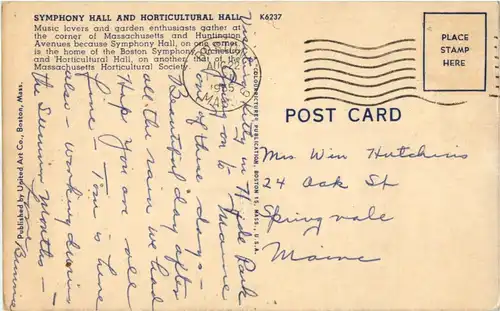 SYMPHONY HALL AND HORTICULTURAL HALL
K6237
Music lovers and garden enthusiasts gather at
the corner of Massachusetts and Huntington
Avenues because Symphony Hall, on one corner
is the home of the Boston Symphony Orchestra
and Horticultural Hall, on another, that of the
Massachusetts Horticultural Society.
Published by United Art Co., Boston, Mass.
PUBLICATION, BOSTON 15, MASS., U.S.A.
PLACE
STAMP
HERE
POST CARD
AUG
MASS
Mrs Win Hutchins
24 Oak St
Springvale
Maine
Visiting Kitty in Hyde Park
going on to Maine
one of these days -
Beautiful day after
all the rain we had
Hope you are all
fine - Tom is here
also - working during
the Summer months -
Love